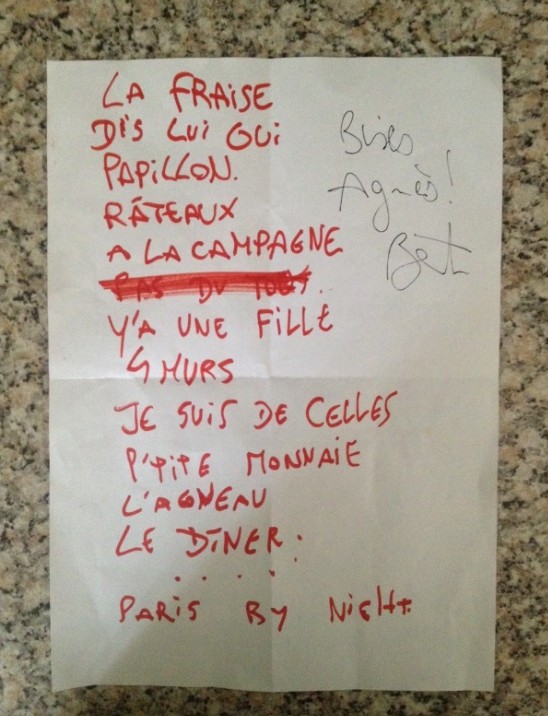 LA FRAISE
DIS LUI OUI
PAPILLON.
RÂTEAUX
A LA CAMPAGNE
PAS DU TOUT.
Y'A UNE FILLE
4 MURS
JE SUIS DE CELLES
P'TITE MONNAIE
L'AGNEAU
LE DÎNER.
. . . . .
PARIS BY NIGHT.
Bises
Agnès!